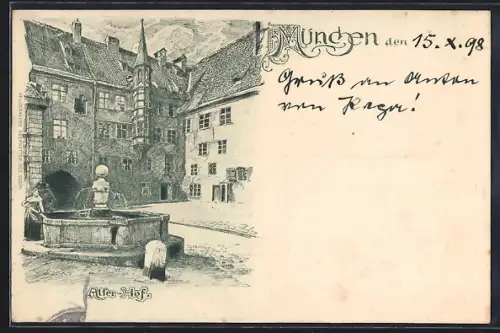 München den 15. X. 98
Gruß an Anton
von Kega!
Alter-Hof.